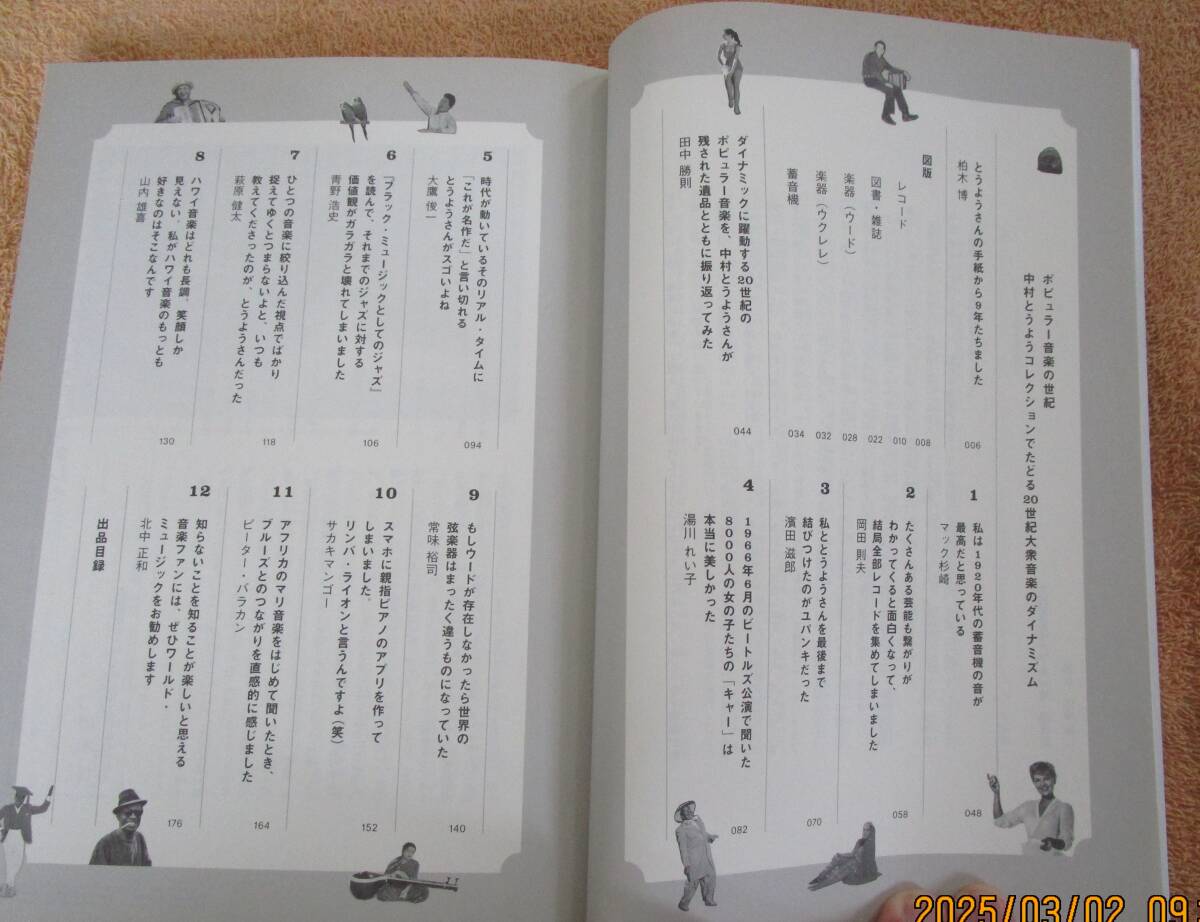 ポピュラー音楽の世紀
中村とうようコレクションでたどる20世紀大衆音楽のダイナミズム
とうようさんの手紙から9年たちました
柏木 博
006
図版
レコード
008
図書・雑誌
010
楽器（ウード）
022
楽器（ウクレレ）
028
蓄音機
032
034
ダイナミックに躍動する20世紀の
ポピュラー音楽を、中村とうようさんが
残された遺品とともに振り返ってみた
田中 勝則
044
1
私は1920年代の蓄音機の音が
最高だと思っている
マック杉崎
048
2
たくさんある芸能も繋がりが
わかってくると面白くなって、
結局全部レコードを集めてしまいました
岡田 則夫
058
3
私ととうようさんを最後まで
結びつけたのがユパンキだった
濱田 滋郎
070
4
1966年6月のビートルズ公演で聞いた
8000人の女の子たちの「キャー」は
本当に美しかった
湯川 れい子
082
5
時代が動いているそのリアル・タイムに
「これが名作だ」と言い切れる
とうようさんがスゴいよね
大鷹 俊一
094
6
『ブラック・ミュージックとしてのジャズ』
を読んで、それまでのジャズに対する
価値観がガラガラと壊れてしまいました
青野 浩史
106
7
ひとつの音楽に絞り込んだ視点でばかり
捉えてゆくとつまらないよと、いつも
教えてくださったのが、とうようさんだった
萩原 健太
118
8
ハワイ音楽はどれも長調。笑顔しか
見えない。私がハワイ音楽のもっとも
好きなのはそこなんです
山内 雄喜
130
9
もしウードが存在しなかったら世界の
弦楽器はまったく違うものになっていた
常味 裕司
140
10
スマホに親指ピアノのアプリを作って
しまいました。
リンバ・ライオンと言うんですよ（笑）
サカキマンゴー
152
11
アフリカのマリ音楽をはじめて聞いたとき、
ブルーズとのつながりを直感的に感じました
ピーター・バラカン
164
12
知らないことを知ることが楽しいと思える
音楽ファンには、ぜひワールド・
ミュージックをお勧めします
北中 正和
176
出品目録
2025/03/02 09